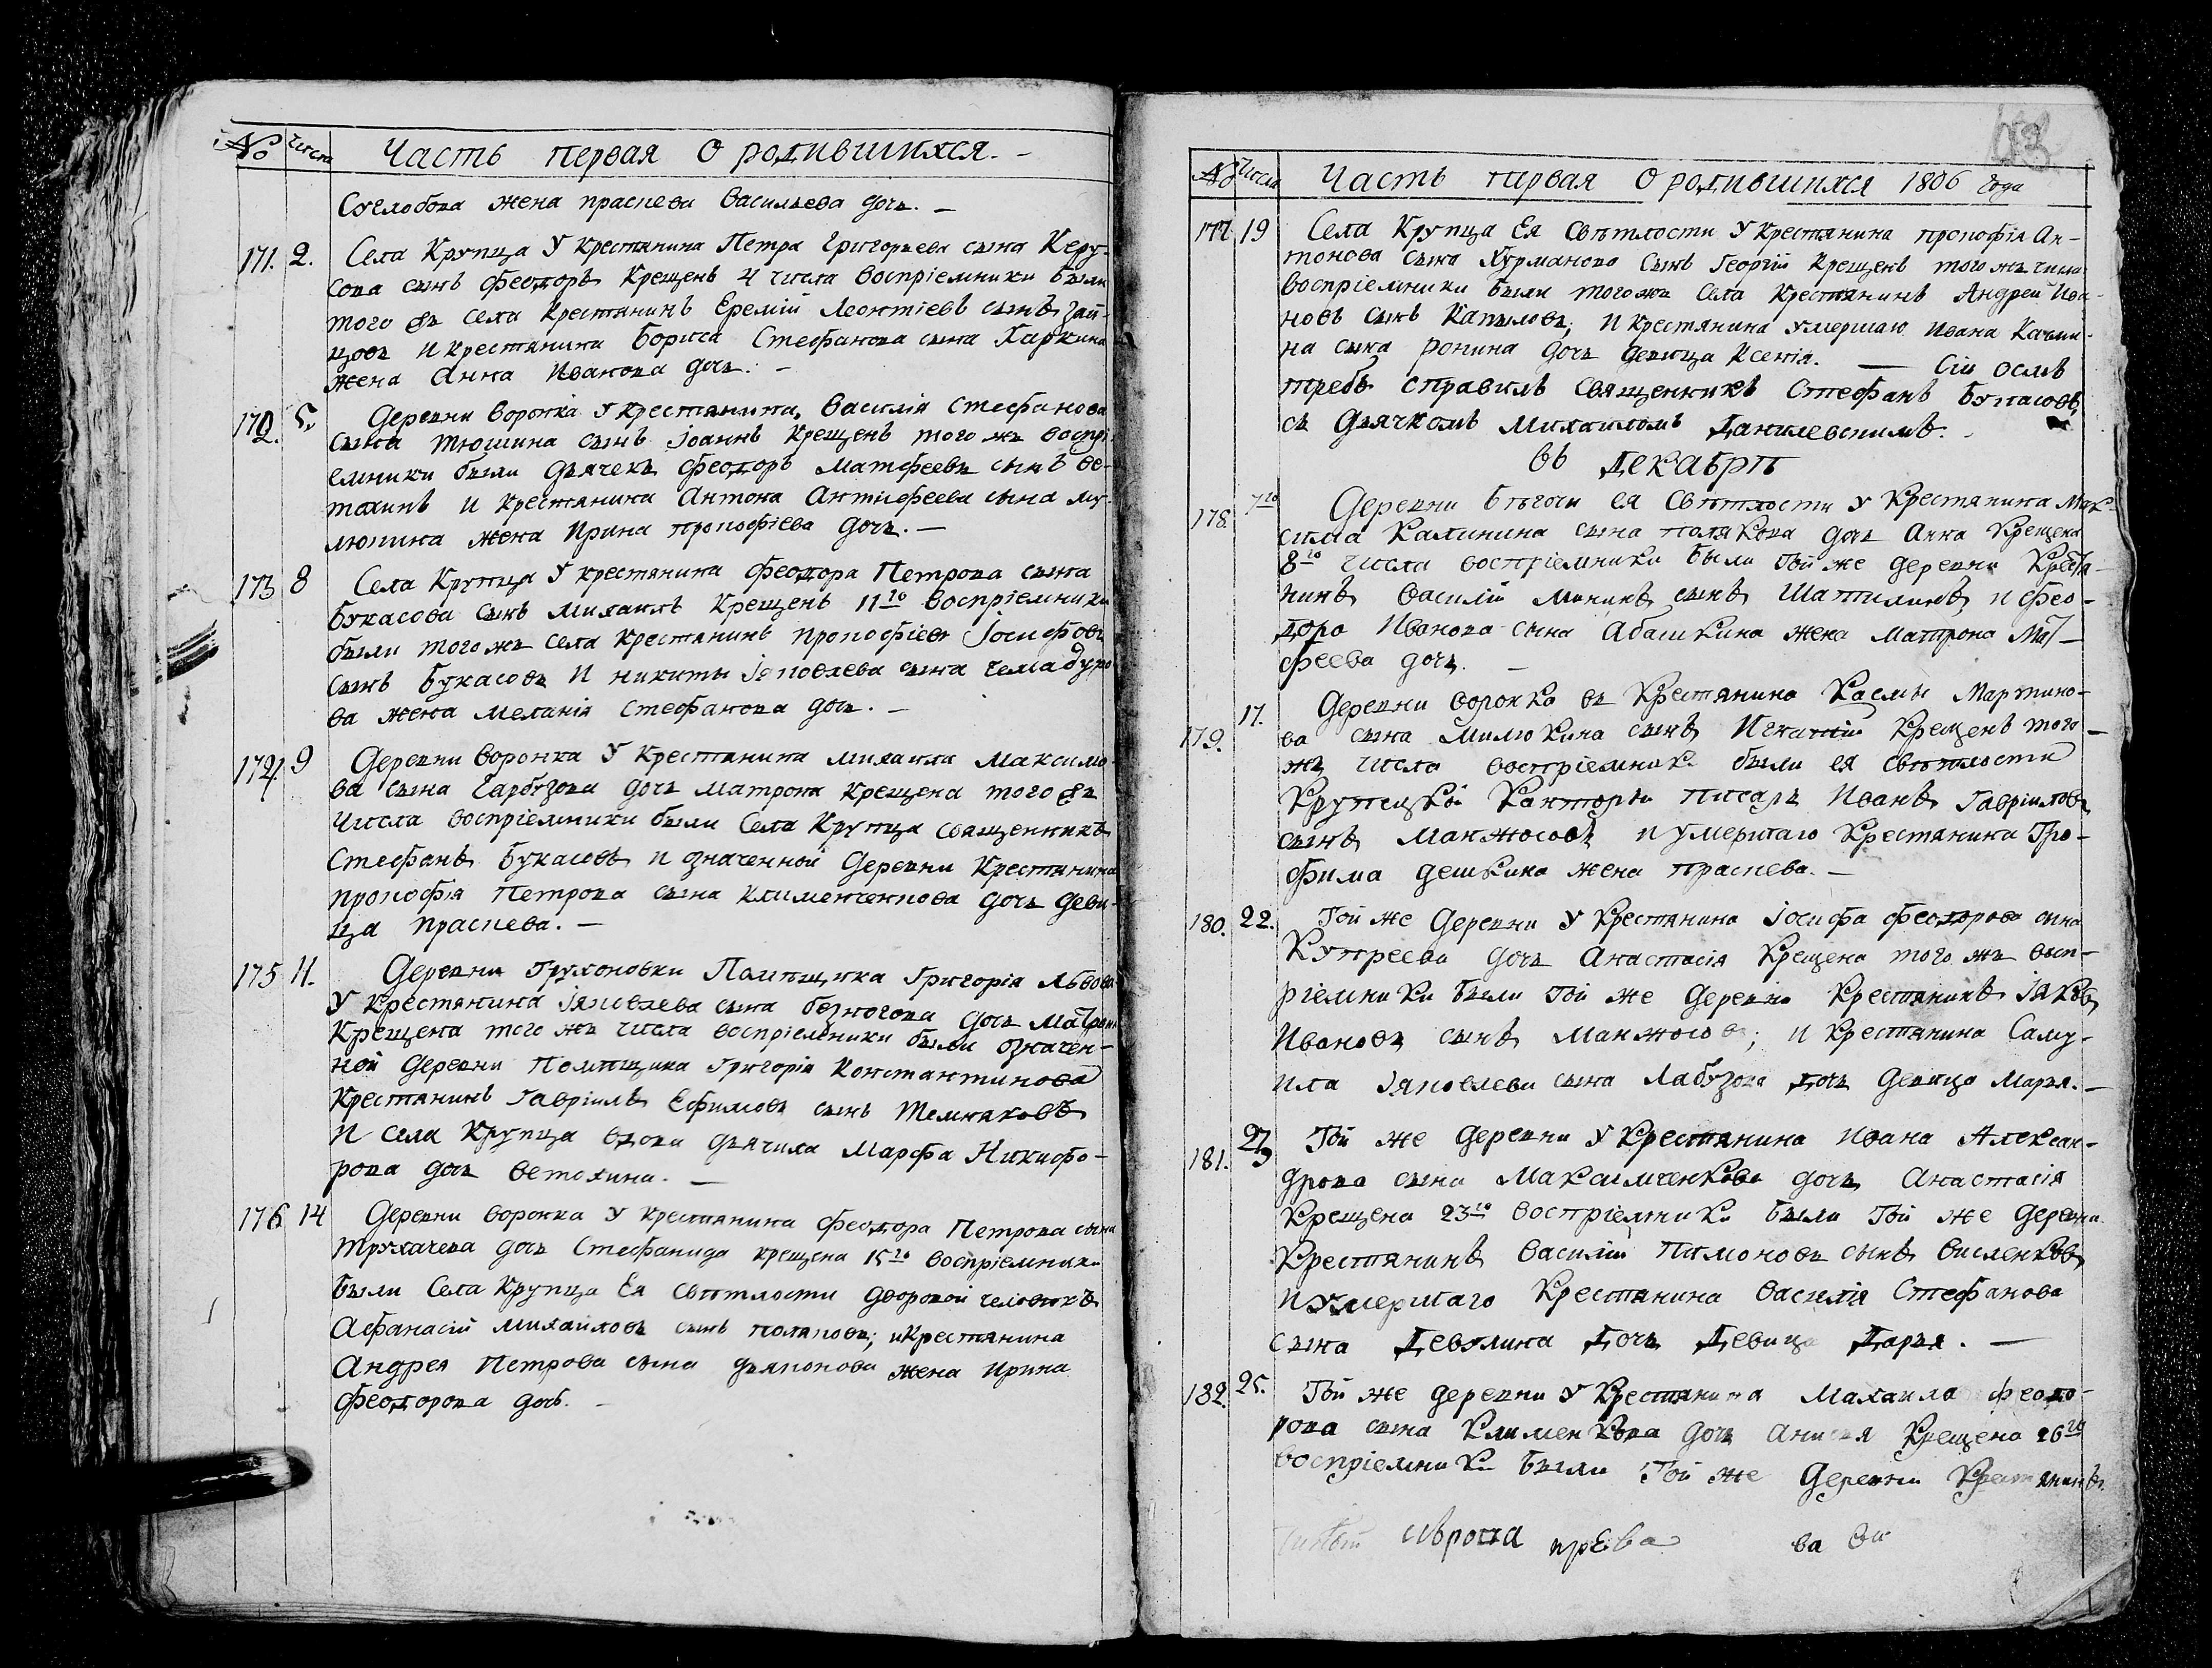 № Числа Часть первая О родившихся. –
Суглобова жена праскева васильева дочь. –
171. 2. Села Крупца У крестянина Петра Григорьева сына Керу-
сова сынъ феодоръ Крещенъ 4 числа воспріемники были
того жъ села Крестянинъ Еремій Леонтіевъ сынъ Гай-
цовъ И крестянина Бориса Стефанова сына Харкина
жена Анна Иванова дочь. –
172. 5. Деревни воронка У крестянина василія Стефанова
сына тюшина сынъ іоаннъ Крещенъ того жъ воспрі
емники были дьячекъ феодоръ матфеевъ сынъ ве-
тохинъ и крестянина Антона Антифеева сына му-
люкина жена Ирина прокофіева дочь. –
173 8 Села Крупца У крестянина феодора Петрова сына
Букасова сынъ михаилъ Крещенъ 11го воспріемники
были того жъ села крестянинъ прокофіевъ іосифовъ
сынъ букасовъ И никиты іаковлева сына чемадуро
ва жена меланія Стефанова дочь. –
174. 9 Деревни воронка У Крестянина михаила максимо
ва сына Гарбузова дочь матрона крещена того жъ
числа воспріемники были Села Крупца священникъ
Стефанъ Букасовъ и означенной Деревни Крестянина
прокофія Петрова сына клименченкова дочь деви-
ца праскева. –
175 11. Деревни Грухоновки Помѣщика Григорія Львова
У крестянина іаковлева сына безногова дочь матрона
Крещена того жъ числа воспріемники были означен-
ной Деревни Помѣщика Григорія Константинова
Крестянинъ Гавріилъ Ефимовъ сынъ темняковъ
И села Крупца вдова дьячиха Марфа Никифо-
рова дочь ветохина. –
176 14 Деревни воронка У крестянина феодора Петрова сына
трухачева дочь Стефанида крещена 15го воспріемники
были Села Крупца Ея свѣтлости дворовой человѣкъ
Афанасій михайловъ сынъ поляковъ; и Крестянина
Андрея Петрова сына дьяконова жена ирина
феодорова дочь. –
№ Числа Часть первая О родившихся 1806 года
177 19 Села Крупца Ея Свѣтлости У Крестянина прокофія Ан-
тонова сына Хурманова сынъ Георгій Крещенъ того жъ числа
воспріемники были того жъ Села крестянинъ Андрей Ива-
новъ сынъ Капыловъ; И крестянина умершаго ивана Качми-
на сына ронина дочь девица Ксенія. – Сіи осмь
требъ справилъ священникъ Стефанъ Букасовъ
съ дьячкомъ михаиломъ Данилевскимъ. –
въ Декабрѣ
178. 7го Деревни бѣгочи ея Свѣтлости У Крестянина мак-
сима калинина сына полякова дочь Анна Крещена
8го числа воспріемники были той же деревни Крестя-
нинъ василій мининъ сынъ Шатилинъ и фео-
дора Иванова сына Абашкина жена матрона мат-
феева дочь. –
179. 17. Деревни воронка въ Крестянина Касмы мартино-
ва сына милюкина сынъ Игнатій Крещенъ того –
жъ числа воспріемники были ея свѣтлости
Крупецкой Канторы писарь иванъ Гавріиловъ
сынъ манжосовъ и умершаго Крестянина Тро-
фима дешкина жена праскева. –
180. 22. Той же Деревни У Крестянина іосифа феодорова сына
Купреева дочь Анастасія Крещена того жъ восп-
ріемники были той же деревни Крестянинъ іаковъ
Ивановъ сынъ манжосовъ; И крестянина Саму-
ила іаковлева сына Лабузова дочь девица марья. –
181. 23 Той же деревни У Крестянина Ивана Алексан-
дрова сына максимченкова дочь Анастасія
Крещена 23го воспріемники были той же деревни
Крестянинъ василій Пимоновъ сынъ висленковъ
и умершаго Крестянина василія Стефанова
сына Девулина дочь девица дарья. –
182. 25. Той же деревни У Крестянина михаила феодо-
рова сына Клименкова дочь Анисья Крещена 26го
воспріемники были той же деревни Крестянинъ
ва